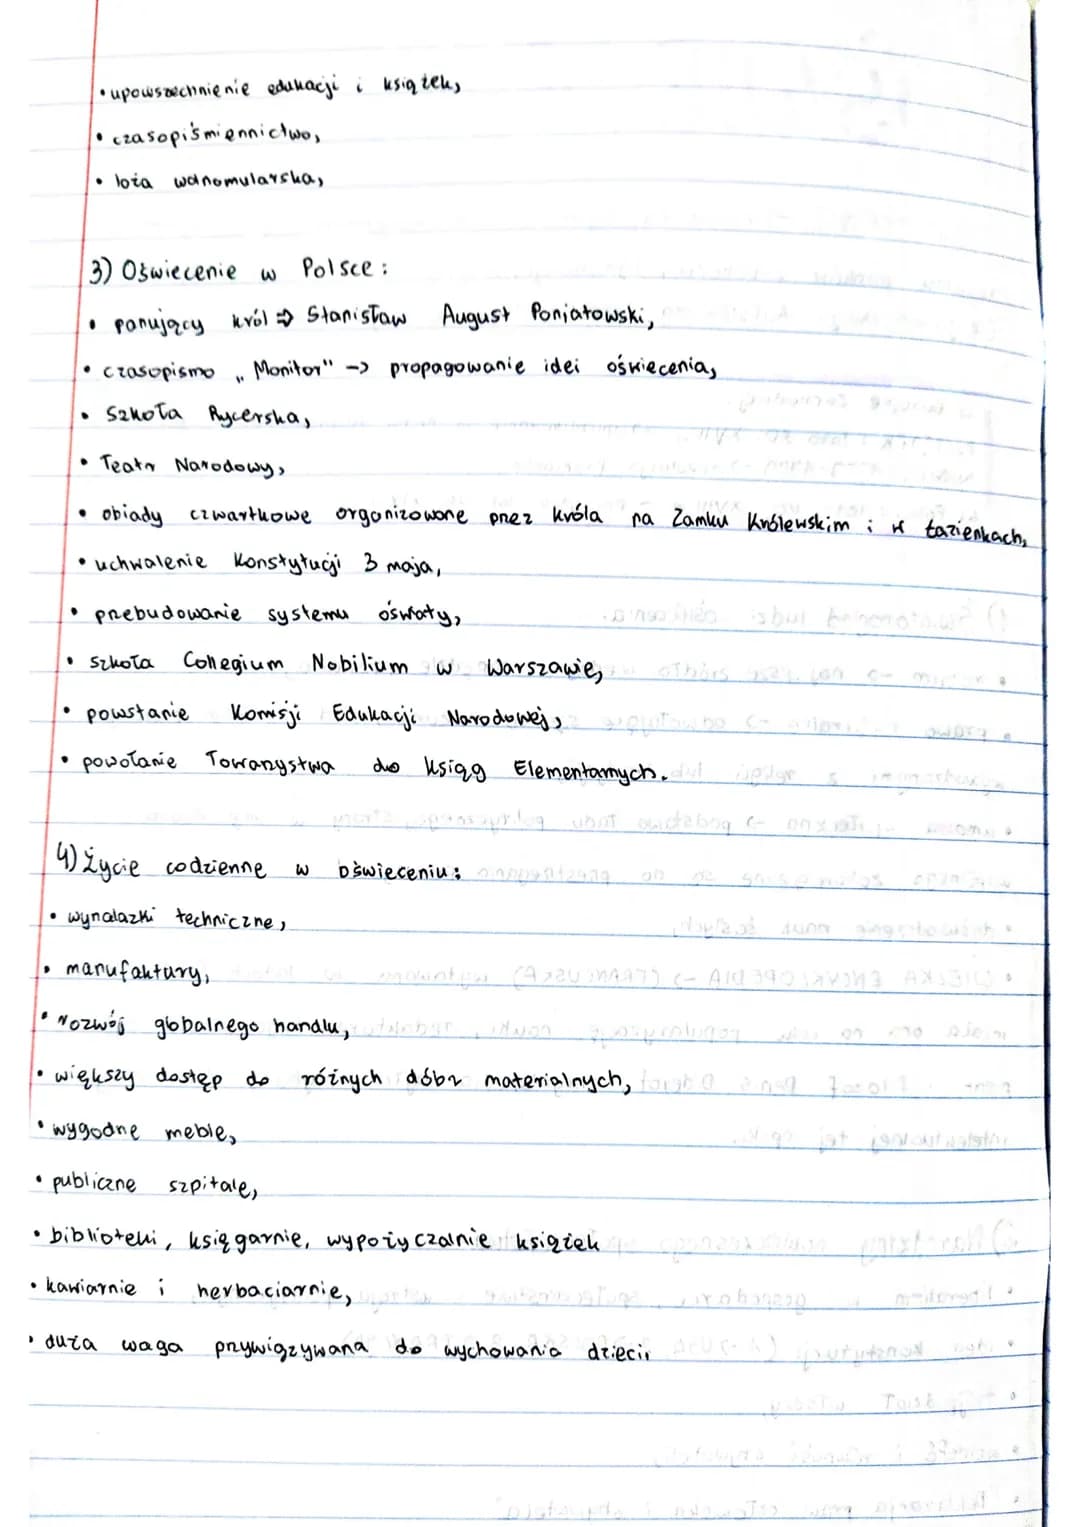 • upowszechnienie edukacji i książek,
• czasopiśmiennictwo,
• loża wolnomularska,
3) Oświecenie w Polsce:
• panujący król ⇒ Stanisław August Poniatowski,
• czasopismo „Monitor" -> propagowanie idei oświecenia,
• Szkoła Rycerska,
• Teatr Narodowy,
• obiady czwartkowe organizowane przez króla na Zamku Królewskim i w Łazienkach,
• uchwalenie Konstytucji 3 maja,
• przebudowanie systemu oświaty,
• szkoła Collegium Nobilium w Warszawie,
• powstanie Komisji Edukacji Narodowej,
• powołanie Towarzystwa do Ksiąg Elementarnych.
4) Życie codzienne w oświeceniu:
• wynalazki techniczne,
• manufaktury,
• rozwój globalnego handlu,
• większy dostęp do różnych dóbr materialnych,
• wygodne meble,
• publiczne szpitale,
• biblioteki, księgarnie, wypożyczalnie książek
• kawiarnie i herbaciarnie,
• duża waga przywiązywana do wychowania dzieci.